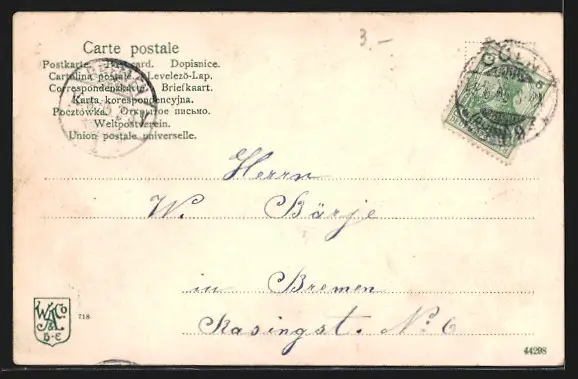 3.-
Carte postale
Postkarte. Post card. Dopisnice.
Cartolina postale. Levelező-Lap.
Correspondenzkarte. Briefkaart.
Karta korespondencyjna.
Pocztówka. Открытое письмо.
Weltpostverein.
Union postale universelle.
Herrn
W. Bärje
in Bremen
Kasingst. No. 6
W & A Co
B-E
718
44298